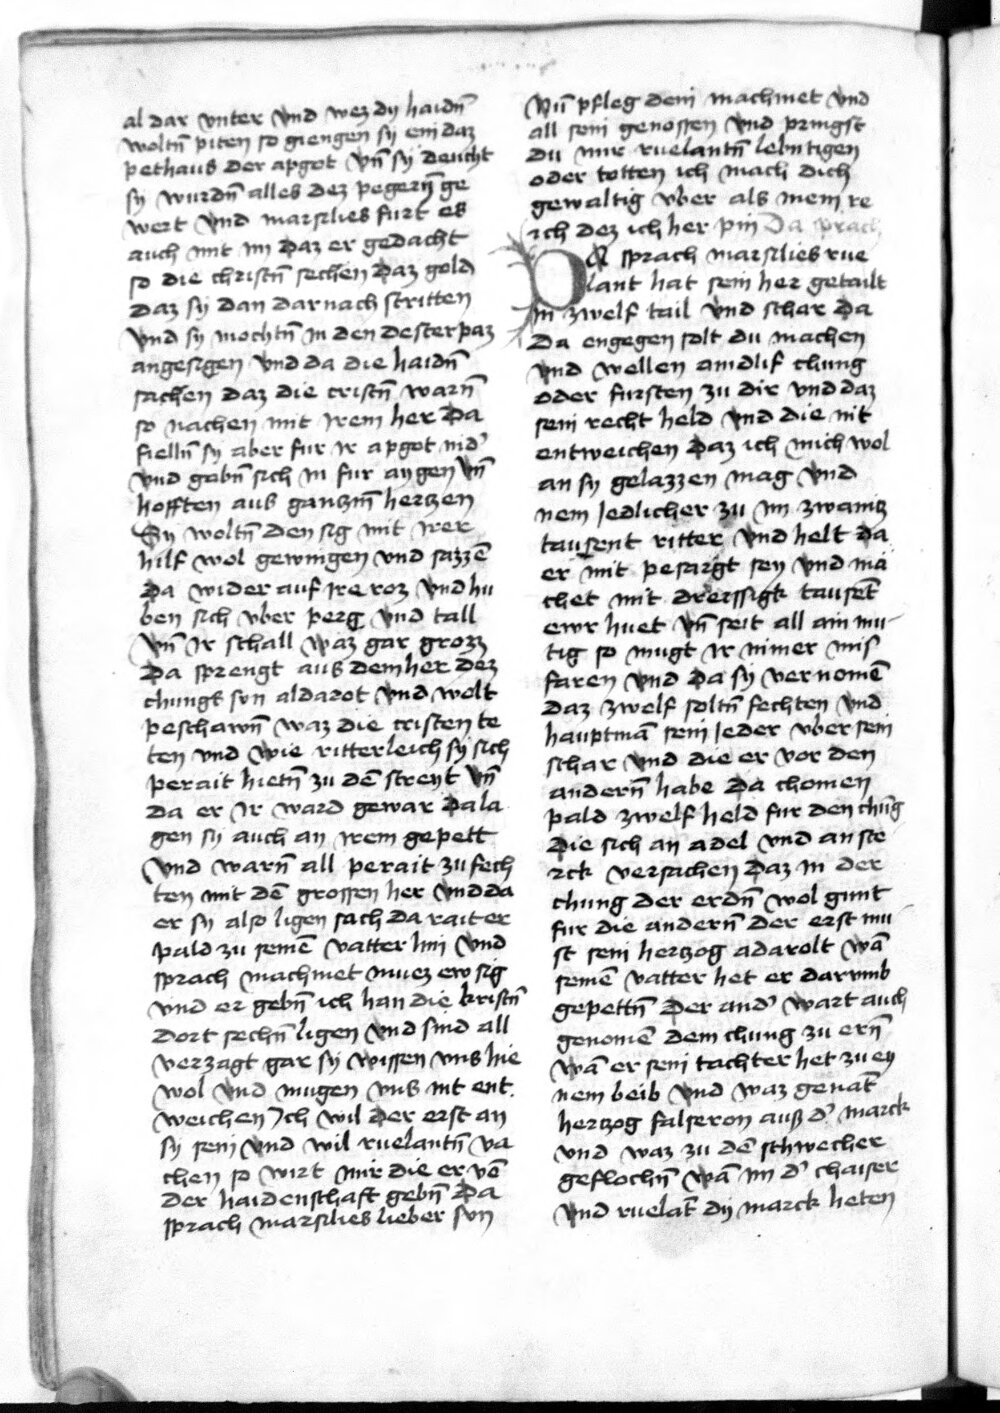 al dar vnter vnd wez dy haidn̄
woltn̄ piten so giengen sy ein daz
pethaus der apgot vn̄ sy deucht
sy wurdn̄ alles dez pegern̄ ge
wert vnd marsilies furt es
auch mit im daz er gedacht
so die christn̄ sechen daz gold
daz sy dan darnach stritten
vnd sy mochtn̄ in den dester paz
angesigen vnd da die haidn̄
sachen daz die cristn̄ warn̄
so nachen mit irem her da
fielln̄ sy aber fur ir apgot nid᾽
vnd gabn̄ sich in fur aygen vn̄
hofften aus ganczm̄ herczen
Sy woltn̄ den sig mit irer
hilf wol gewingen vnd sazzē
da wider auf ire roz vnd hu
ben sich vber perg vnd tall
vn̄ ir schall waz gar grozz
da sprengt aus dem her dez
chungs sun aldarot vnd wolt
peschawn̄ waz die cristen te
ten vnd wie ritterleich sy sich
perait hietn̄ zu dē streyt vn̄
da er ir ward gewar da la
gen sy auch an irem gepett
vnd warn̄ all perait zu fech
ten mit dē grossen her vnd da
er sy also ligen sach da rait er
pald zu seinē vatter hin vnd
sprach machmet muez ew sig
vnd er gebn̄ ich han die kristn̄
dort sechn̄ ligen vnd sind all
verzagt gar sy wissen vns hie
wol vnd mugen vns nit ent
weichen Ich wil der erst an
sy sein vnd wil ruelantn̄ va
chen so wirt mir die er vō
der haidenschaft gebn̄ da
sprach marsilies lieber sun
Nū pfleg dein machmet vnd
all sein genossen vnd pringst
du mir ruelantn̄ lebntigen
oder totten ich mach dich
gewaltig vber als mein re
ich dez ich her pin Da sprach
DA sprach marsilies rue
lant hat sein her getailt
in zwelf tail vnd schar da
Da engegen solt du machen
vnd wellen aindlif chung
oder fursten zu dir vnd daz
sein recht held vnd die nit
entweichen daz ich mich wol
an sy gelazzen mag vnd
nem Jedlicher zu im zwainz
tausent ritter vnd helt da
er mit pesargt sey vnd ma
chet mit dreissigk tausēt
ewr huet vn̄ seit all ain mu-
tig so mugt ir nimer mis
faren vnd da sy vernomē
daz zwelf soltn̄ fechten vnd
hauptmā sein Jeder vber sein
schar vnd die er vor den
andern̄ habe da chomen
pald zwelf held fur den chūg
die sich an adel vnd an ste
rck versachen daz in der
chung der erdn̄ wol gunt
fur die andern̄ der erst mu
st sein herzog adarolt wā
seinē vatter het er darumb
gepettn̄ Der and᾽ wart auch
genomē dem chung zu ern̄
wā er sein tachter het zu ey
nem beib vnd waz genāt
herczog falseron auß d᾽ marck
vnd waz zu dē schwecher
geflochn̄ wā im d᾽ chaiser
vnd ruelāt dy marck heten